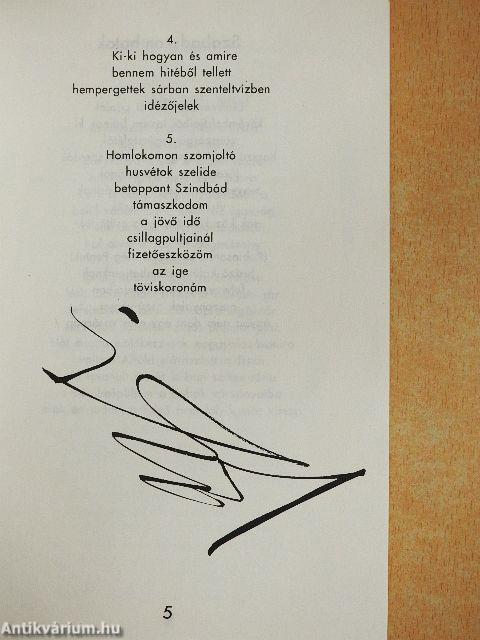 4.
Ki-ki hogyan és amire
bennem hitéből tellett
hempergettek sárban szenteltvízben
idézőjelek
5.
Homlokomon szomjoltó
husvétok szelide
betoppant Szindbád
támaszkodom
a jövő idő
csillagpultjainál
fizetőeszközöm
az ige
töviskoronám
5
Antikvárium.hu